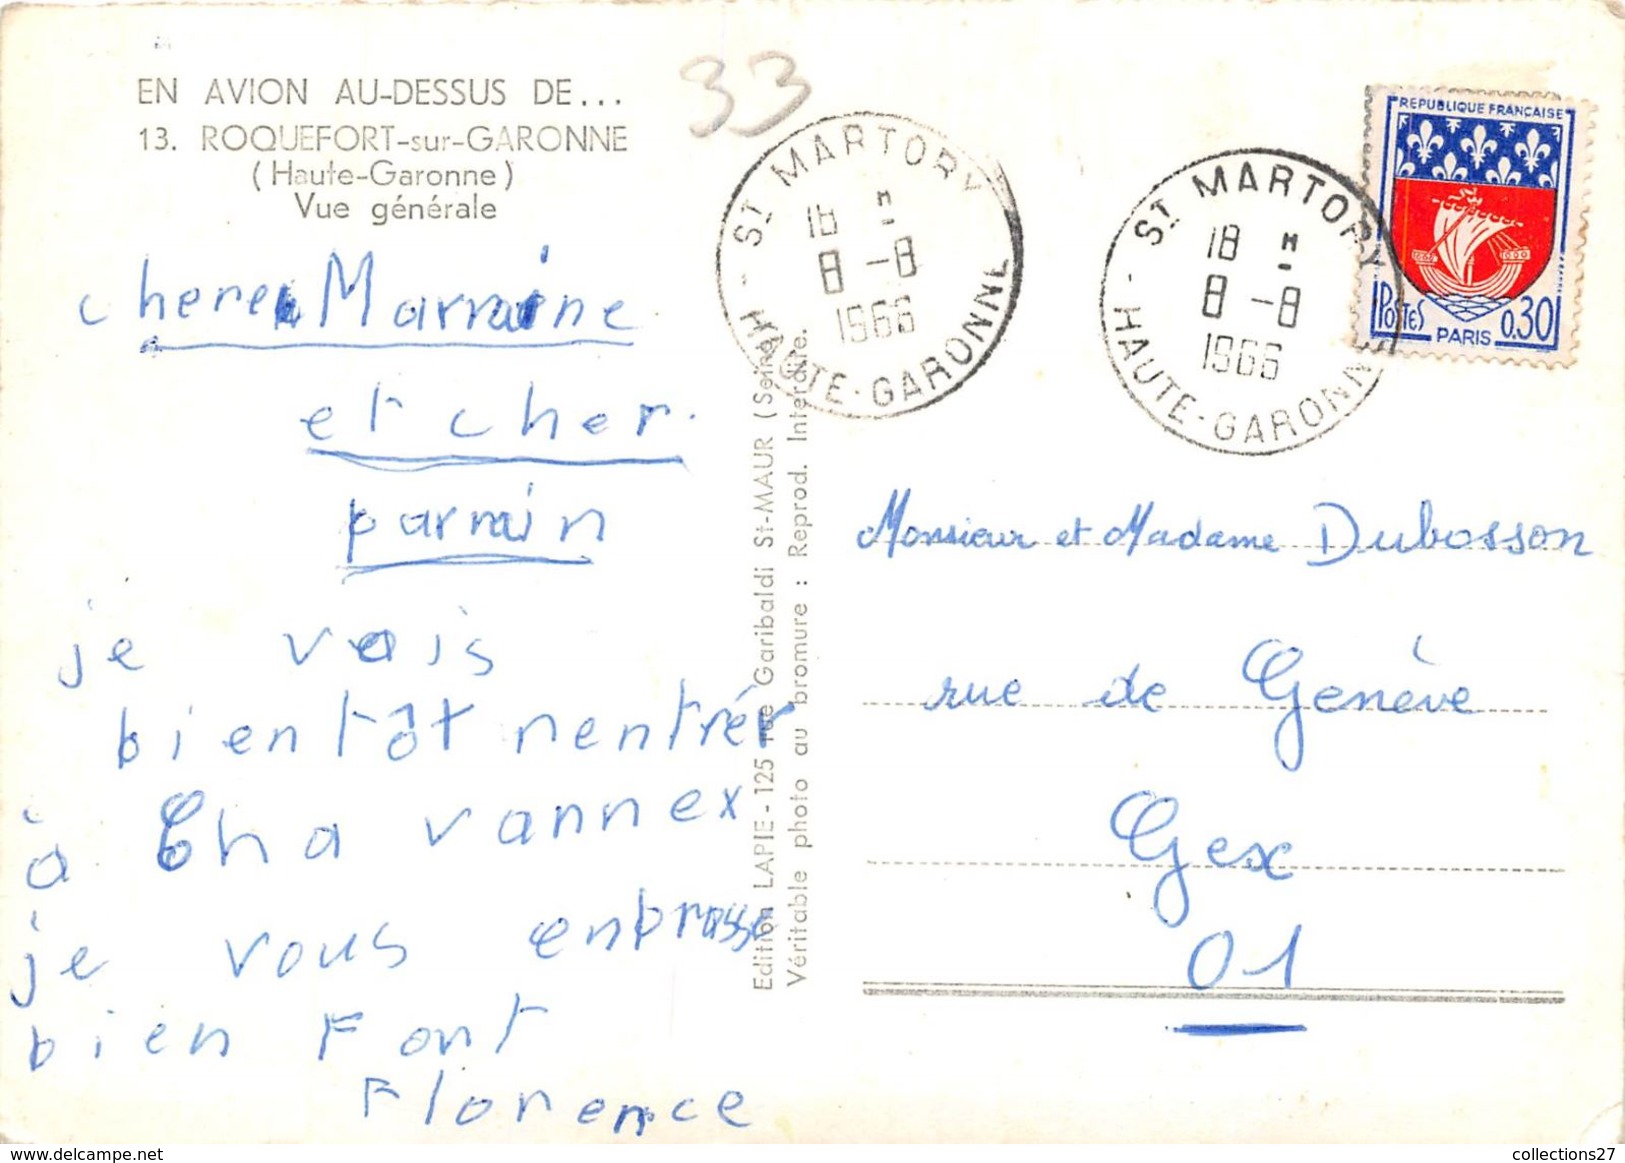 EN AVION AU-DESSUS DE...
13. ROQUEFORT-sur-GARONNE
(Haute-Garonne)
Vue générale
33
ST MARTORY
18 H
8 -8
1966
HAUTE-GARONNE
ST MARTORY
18 H
8 -8
1966
HAUTE-GARONNE
REPUBLIQUE FRANÇAISE
POSTES
PARIS
0,30
chere Marraine
et cher
parrain
je vais
bientôt rentrér
à Chavannex
je vous enbrasse
bien Fort
Florence
Edition LAPIE - 125 rue Garibaldi St-MAUR (Seine)
Véritable photo au bromure : Reprod. Interdite.
Monsieur et Madame Dubosson
rue de Genève
Gex
01
collections27